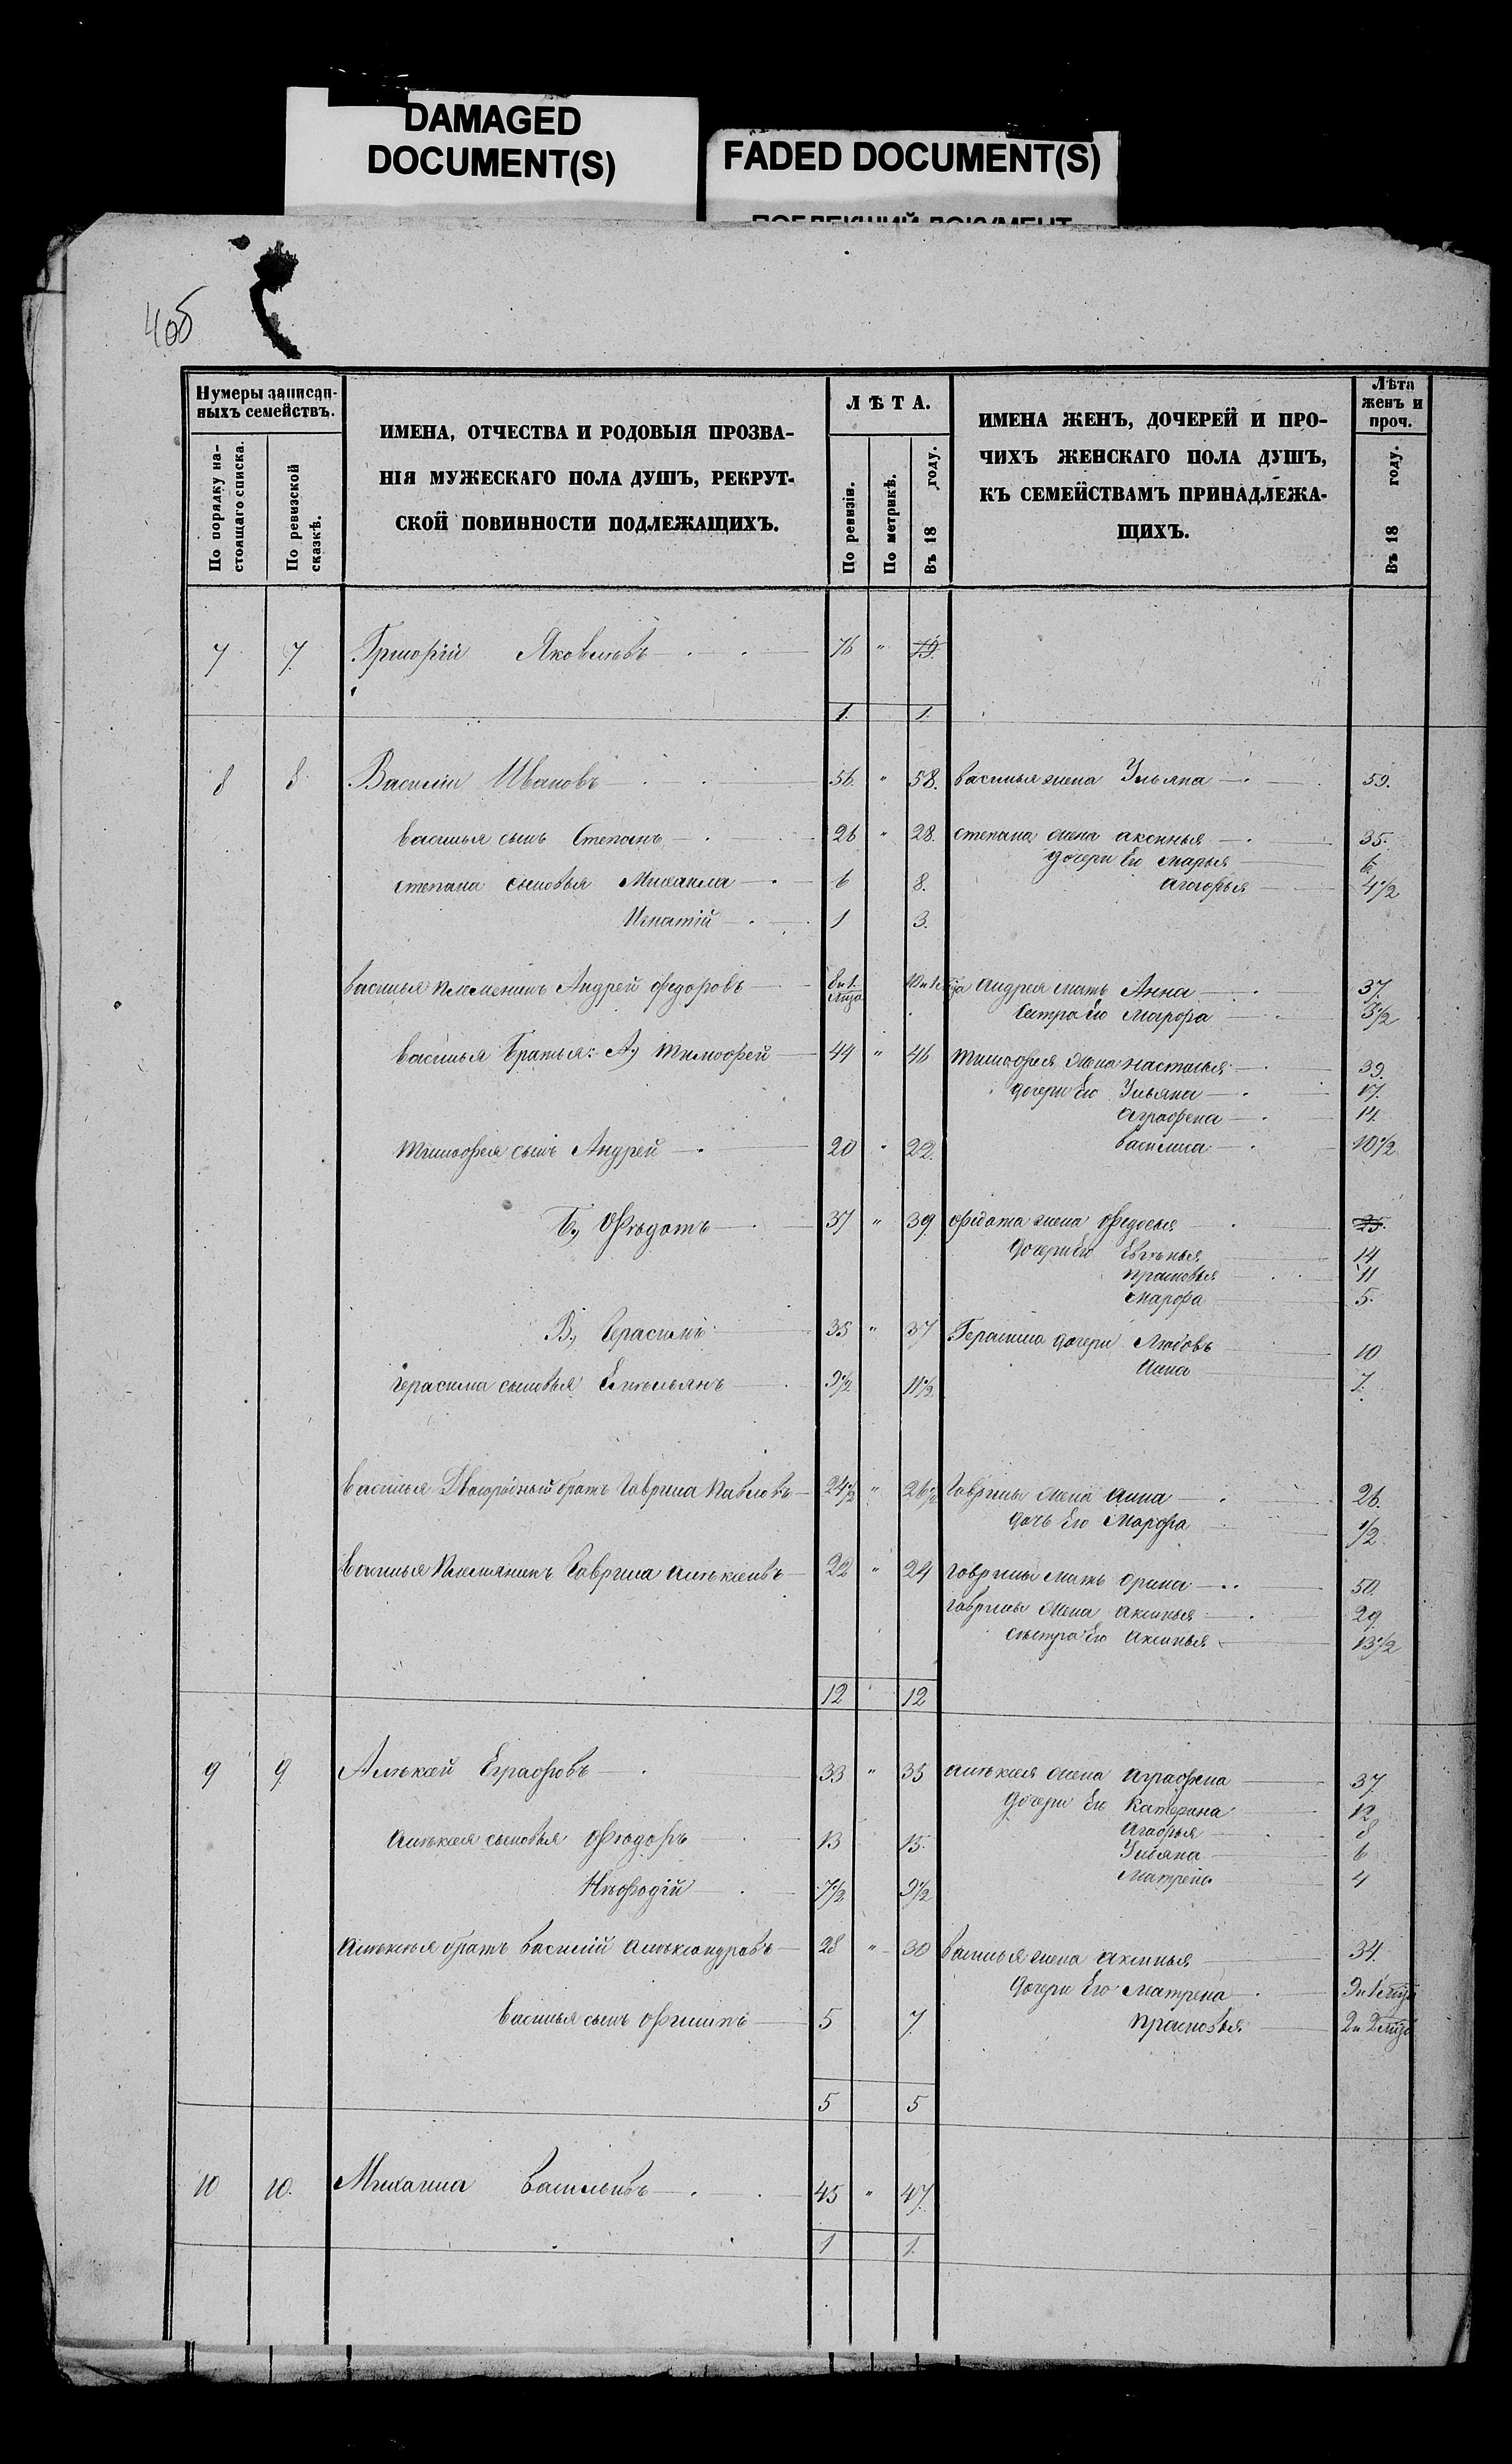 DAMAGED
DOCUMENT(S)
FADED DOCUMENT(S)
ПОБЛЕКШИЙ ДОКУМЕНТ
4об
Нумеры записан-
ныхъ семействъ.
По порядку на-
стоящаго списка.
По ревизской
сказкѣ.
ИМЕНА, ОТЧЕСТВА И РОДОВЫЯ ПРОЗВА-
НІЯ МУЖЕСКАГО ПОЛА ДУШЪ, РЕКРУТ-
СКОЙ ПОВИННОСТИ ПОДЛЕЖАЩИХЪ.
ЛѢТА.
По ревизіи.
По метрикѣ.
Въ 18 году.
ИМЕНА ЖЕНЪ, ДОЧЕРЕЙ И ПРО-
ЧИХЪ ЖЕНСКАГО ПОЛА ДУШЪ,
КЪ СЕМЕЙСТВАМЪ ПРИНАДЛЕЖА-
ЩИХЪ.
Лѣта
женъ и
проч.
Въ 18 году.
7 7 Григорій Яковлевъ 76 "
1. 1.
8 8 Василій Ивановъ 56. " 58. Василья жена Ульяна 59.
Василья сынъ Степанъ 26 " 28. Степана жена Аксинья 35.
дочери Ею Марья 6
Степана сыновья Михайла 6 8. Агафья 4 1/2
Игнатій 1 3.
Василья племянникъ Андрей Федоровъ Андрея мать Анна 37.
Сестра Ею Марфа 3 1/2
Василья братья: А) Тимофей 44 " 46 Тимофея жена Настасья 39.
дочери Ею Ульяна 17.
Аграфена 14.
Тимофея сынъ Андрей 20 " 22. Василиса 10 1/2
Б) Фѣдотъ 37 " 39 Федота жена Федосья
дочери Ею Евгенья 14
Прасковья 11
Марфа 5.
В) Герасимъ 35 " 37 Герасима дочери Любовь 10
Анна 7.
Герасима сыновья Емельянъ 9 1/2 11 1/2
Василья Двоюродный братъ Гаврила Павловъ 24 1/2 " 26 1/2 Гаврилы жена Анна 26.
дочь Ею Марфа 1/2
Василья племянникъ Гаврила Алексеевъ 22 " 24 Гаврилы мать Орина 50.
Гаврилы жена Аксинья 29
сестра Ею Аксинья 13 1/2
12 12
9 9 Алексей Еграфовъ 33 " 35 Алексея жена Аграфена 37.
дочери Ею Катерина 12
Агафья 8
Алексея сыновья Фёдоръ 13 15. Ульяна 6
Матрена 4
Нефодій 7 1/2 9 1/2
Алексея братъ Василій Александровъ 28 " 30 Василья жена Аксинья 34.
дочери Ею Матрена
Василья сынъ Филипъ 5 7. Прасковья
5 5
10 10. Михайла Васильевъ 45 " 47.
1 1.